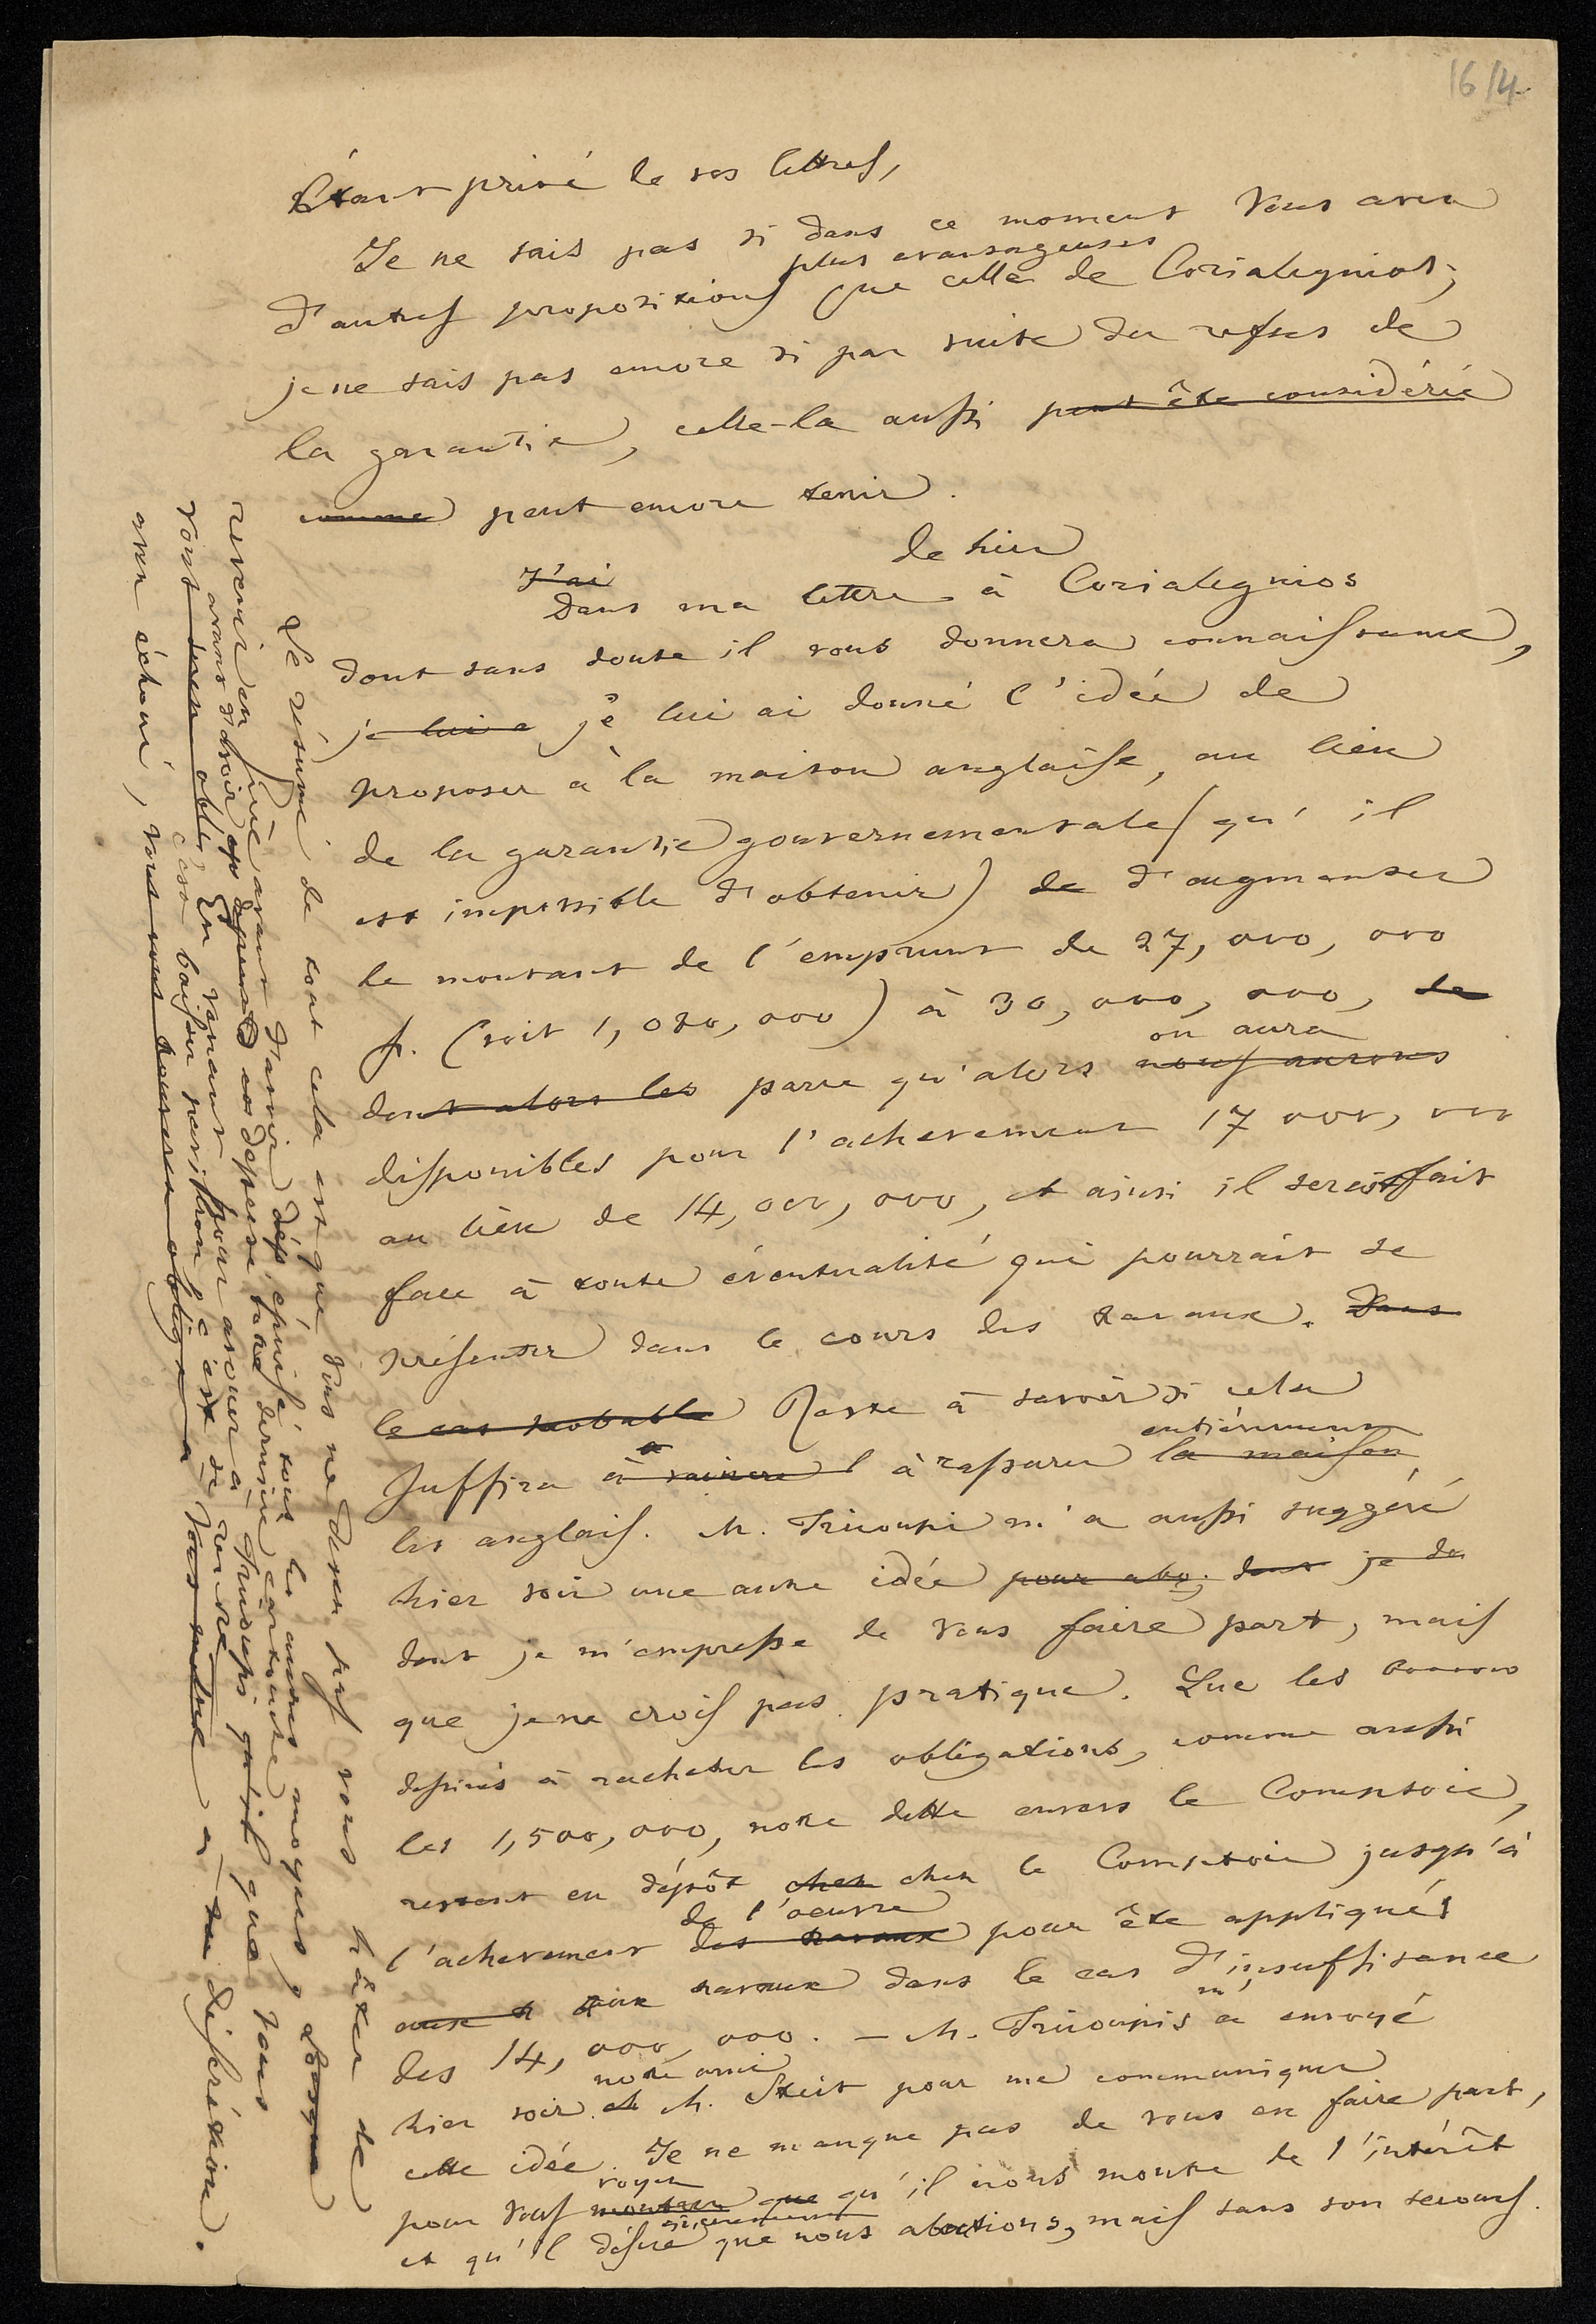 16/4
Étant privé de vos lettres,
Je ne sais pas si dans ce moment vous avez
plus avantageuses
d'autres propositions que celle de Corialegnios;
je ne sais pas encore si par suite du refus de
la garantie, celle-la aussi peut être considérée
comme peut encore tenir.
de hier
J'ai
Dans ma lettre à Corialegnios
dont sans doute il vous donnera connaissance,
je lui a je lui ai donné l'idée de
proposer à la maison anglaise, au lieu
de la garantie gouvernementale (qu'il
est impossible d'obtenir) de d'augmenter
le montant de l'emprunt de 27,000,000
f. (soit 1,080,000) à 30,000,000, de
dont alors les parce qu'alors nous aurons
on aura
disponibles pour l'achevement 17 000,000
au lieu de 14,000,000, et ainsi il serait fait
face à toute éventualité qui pourrait se
présenter dans le cours des travaux. Dans
le cas probable Reste à savoir si cela
entièrement
suffira à vaincre à rassurer la maison
les anglais. M. Tricoupi m'a aussi suggéré
hier soir une autre idée pour dont je
dont je m'empresse de vous faire part, mais
que je ne crois pas pratique. Que les
destinés à racheter les obligations, comme aussi
les 1,500,000, notre dette envers le Comptoir,
restent en dépôt chez chez le Comptoir jusqu'à
de l'oeuvre
l'achevement des travaux pour être appliqués
aux travaux dans le cas d'insuffisance
des 14,000,000. — M. Tricoupis m'a envoyé
notre ami
hier soir M. Streit pour me communiquer
cette idée. Je ne manque pas de vous en faire part,
voyez
pour vous montrer que qu'il nous montre de l'intérêt
sincerement
et qu'il désire que nous aboutions, mais sans son secours.
Le résumé de tout cela est que vous ne devez pas vous hâter de
revenir en Grèce avant d'avoir épuisé tous les autres moyens, Lorsque
avant d'avoir depensé vos depense votre dernière cartouche
vous serez obligé En venant pour avouer à Tricoupi que vous
c'est baisser pavillon, c'est se rendre
avez échoué, vous vous trouverez obligé à vous rendre à sa discrétion.